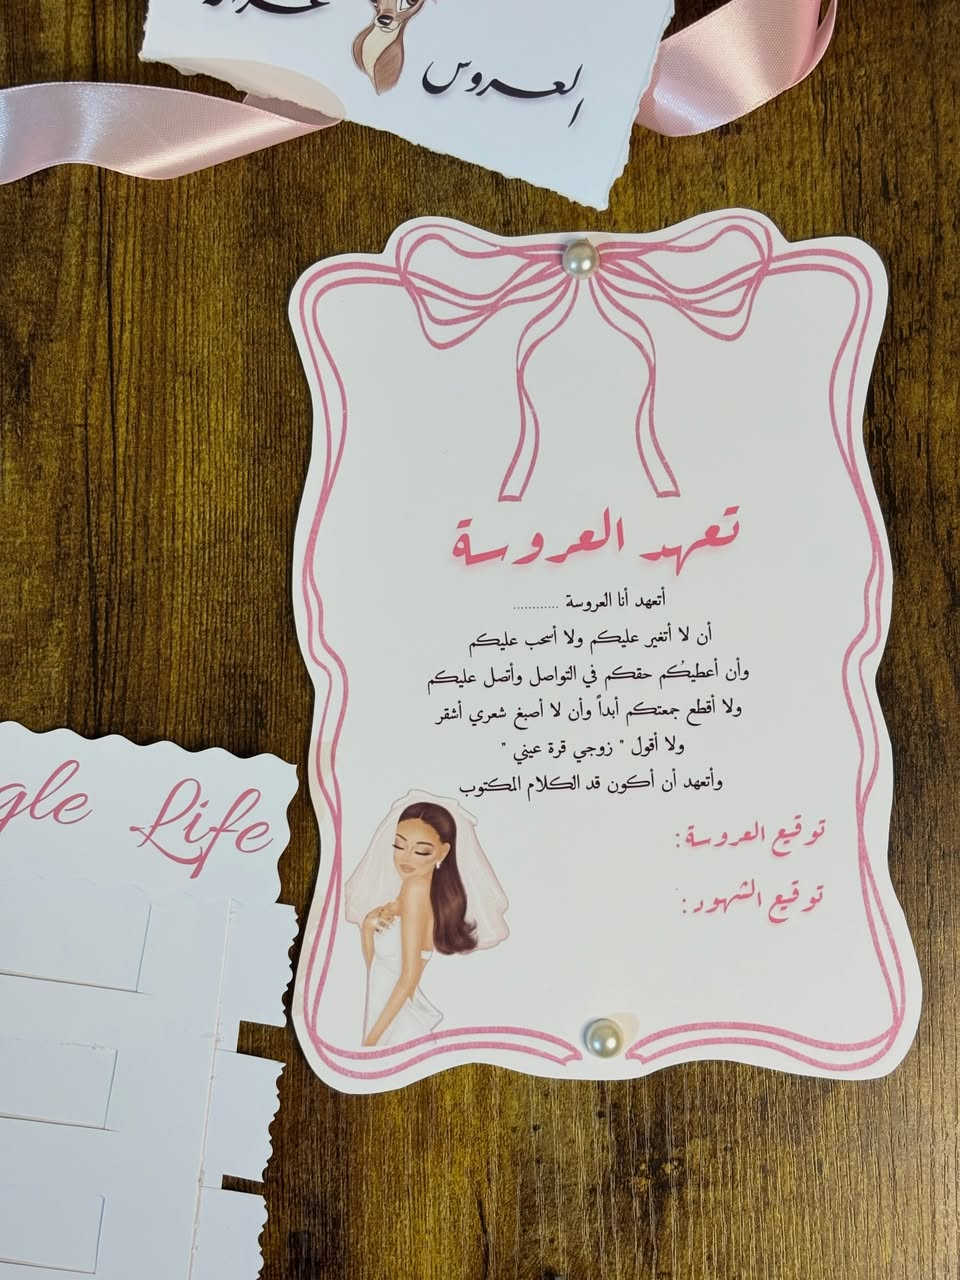 العروس
تعهد العروسة
أتعهد أنا العروسة ............
أن لا أتغير عليكم ولا أسحب عليكم
وأن أعطيكُم حقكم في التواصل وأتصل عليكم
ولا أقطع جمعتكم أبداً وأن لا أصبغ شعري أشقر
ولا أقول " زوجي قرة عيني "
وأتعهد أن أكون قد الكلام المكتوب
توقيع العروسة:
توقيع الشهود:
gle Life